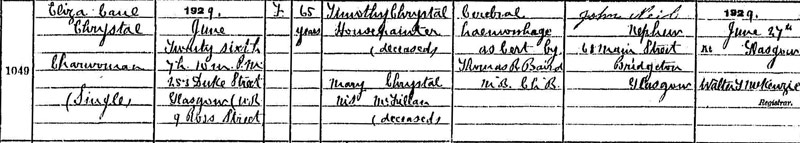 1049
Eliza Cane
Chrystal
Charwoman
(Single)
1929.
June
Twenty sixth
7h. 15m. P.M.
253 Duke Street
Glasgow (U.R.
9 Ross Street
F
65
years
Timothy Chrystal
Housepainter
(deceased)
Mary Chrystal
M.S. McMillan
(deceased)
Cerebral
haemorrhage
as Cert by
Thomas R. Baird
M.B. Ch.B.
John Neil
Nephew
68 Main Street
Bridgeton
Glasgow
1929.
June 27th
At Glasgow
McKenzie
Registrar.